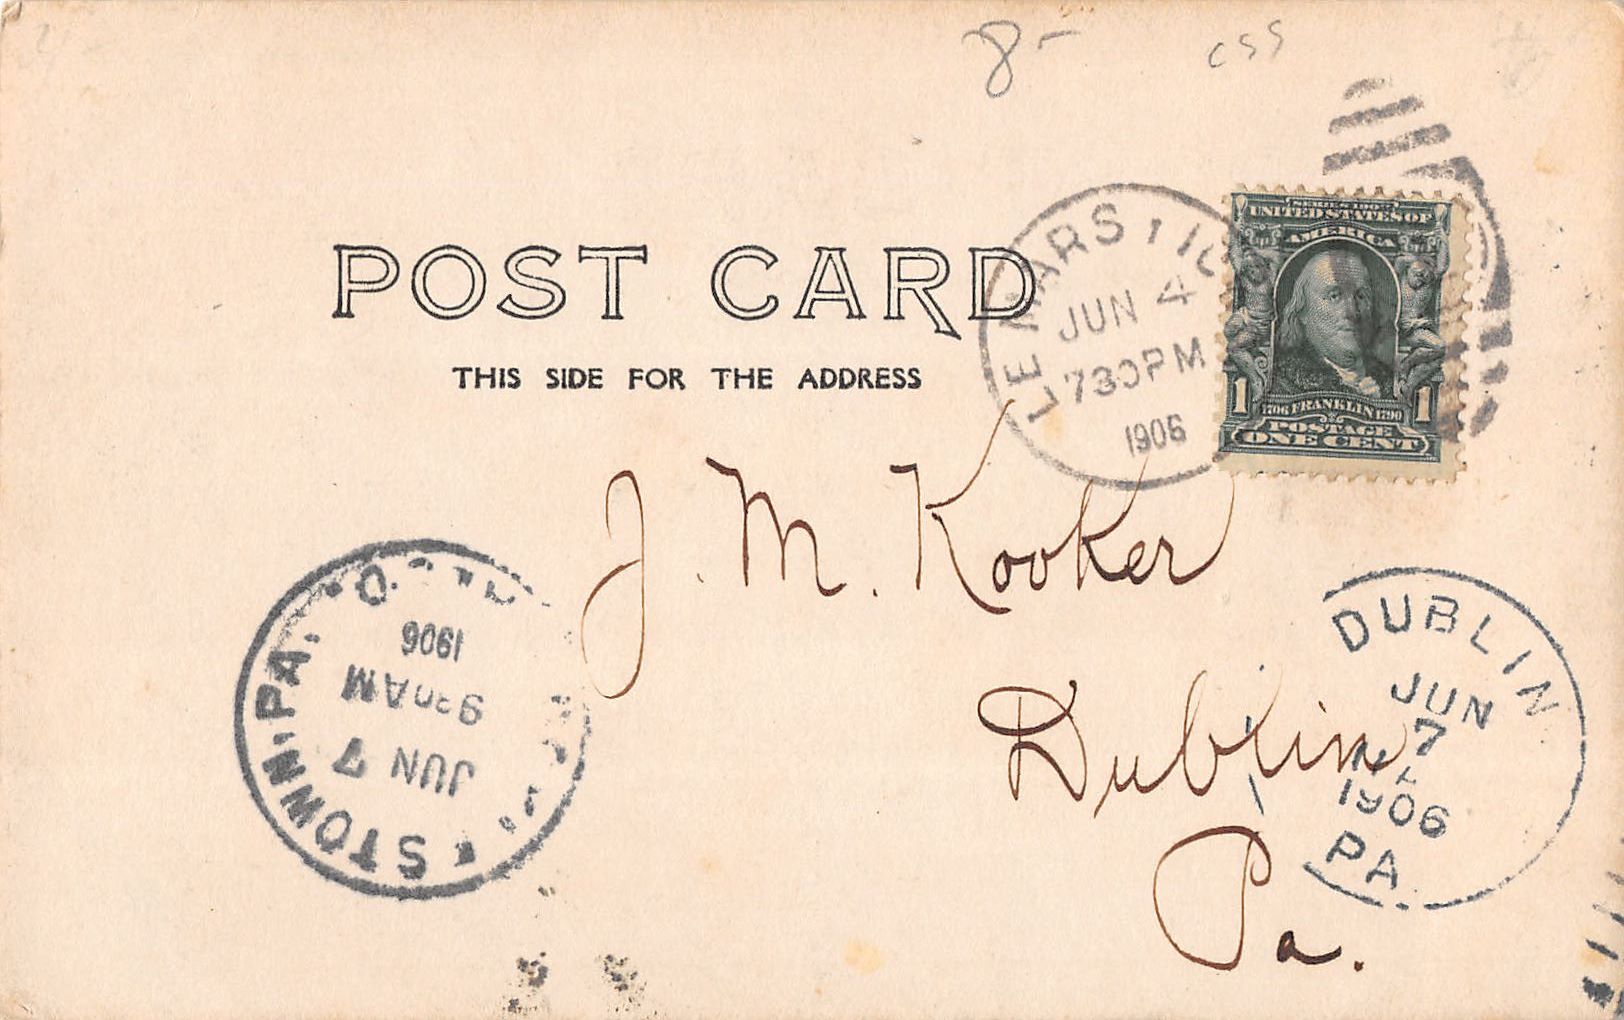 8- css
POST CARD
THIS SIDE FOR THE ADDRESS
LE MARS
JUN 4
730PM
1906
SERIES 1902
UNITED STATES OF
AMERICA
1 1706 FRANKLIN 1790 1
POSTAGE
ONE CENT
J. M. Kooker
Dublin
Pa.
STOWN, PA.
JUN 7
930AM
1906
DUBLIN
JUN
7
1906
PA.